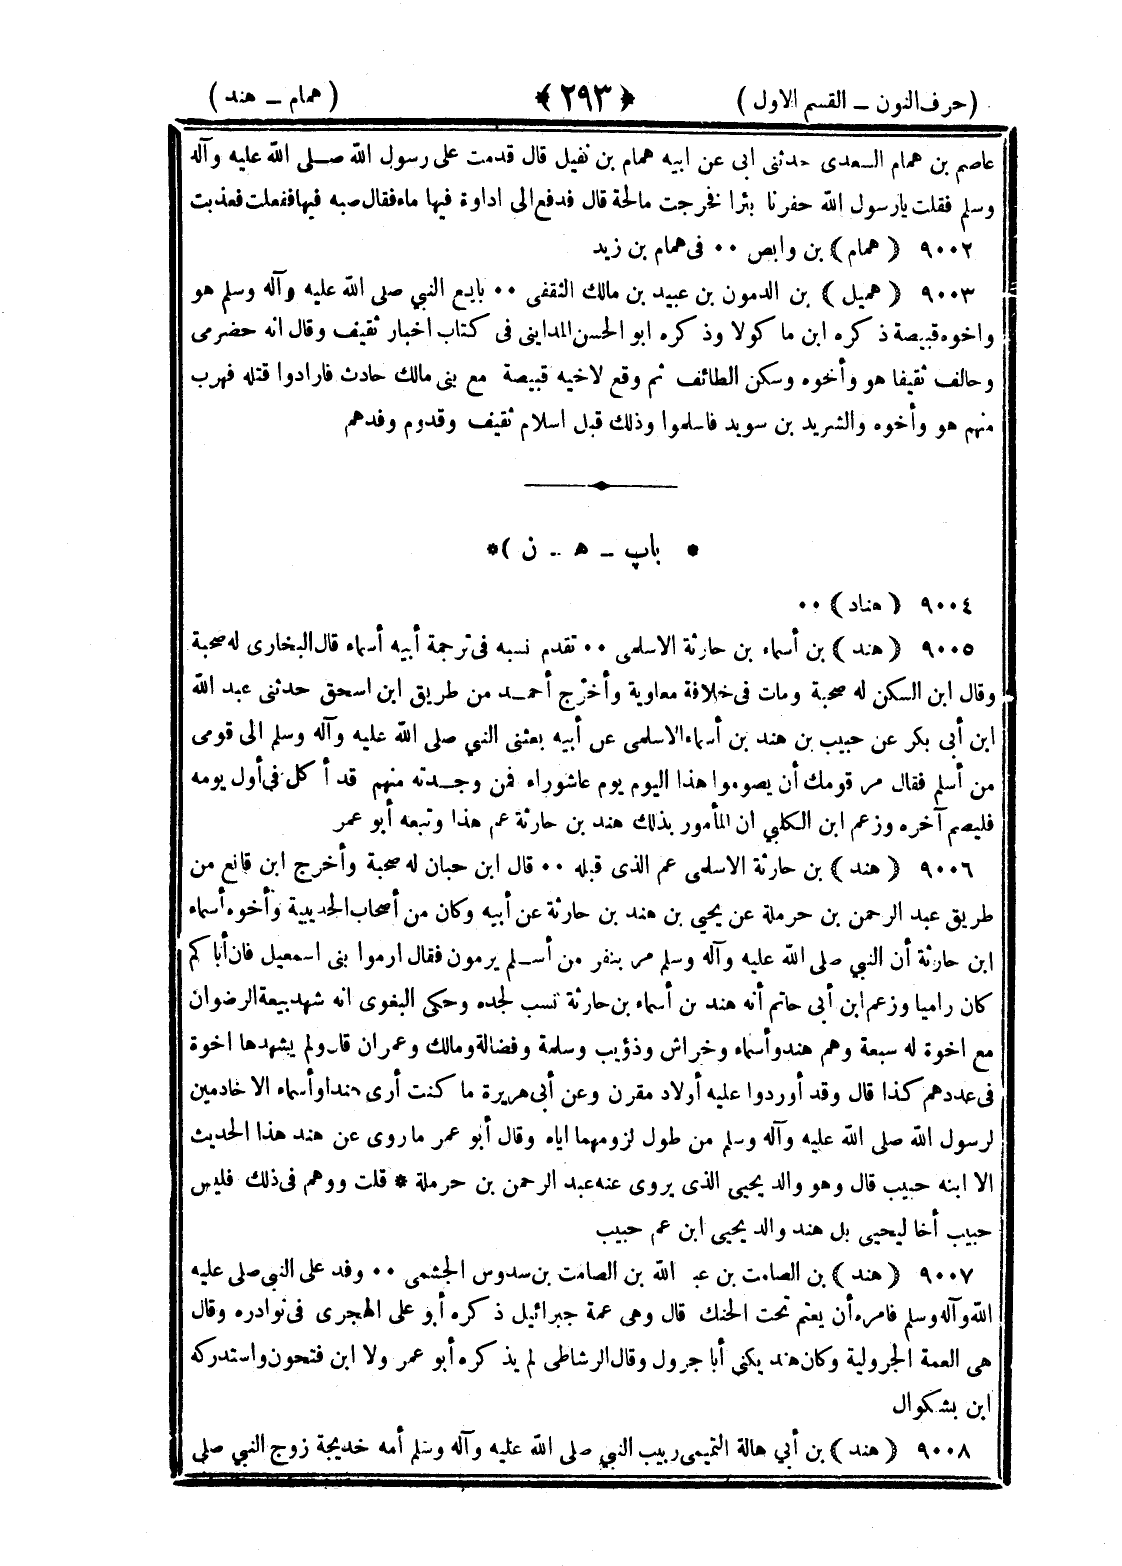 (حرف النون ـ القسم الاول) ﴿٢٩٣﴾ (همام ـ هند)
عاصم بن همام السعدى حدثنى ابى عن ابيه همام بن نفيل قال قدمت على رسول الله صلى الله عليه وآله
وسلم فقلت يارسول الله حفرنا بئرا فخرجت مالحة قال فدفع الى اداوة فيها ماء فقال صبه فيها ففعلت فعذبت
٩٠٠٢ (همام) بن وابص ٠٠ فى همام بن زيد
٩٠٠٣ (هميل) بن الدمون بن عبيد بن مالك الثقفى ٠٠ بايع النبي صلى الله عليه وآله وسلم هو
واخوه قبيصة ذكره ابن ماكولا وذكره ابو الحسن المداينى فى كتاب اخبار ثقيف وقال انه حضرمى
وحالف ثقيفا هو وأخوه وسكن الطائف ثم وقع لاخيه قبيصة مع بنى مالك حادث فارادوا قتله فهرب
منهم هو وأخوه والشريد بن سويد فاسلموا وذلك قبل اسلام ثقيف وقدوم وفدهم
* باب ـ ه ـ ن )*
٩٠٠٤ (هناد) ٠٠
٩٠٠٥ (هند) بن أسماء بن حارثة الاسلمى ٠٠ تقدم نسبه فى ترجمة أبيه أسماء قال البخارى له صحبة
وقال ابن السكن له صحبة ومات فى خلافة معاوية وأخرج أحمد من طريق ابن اسحق حدثنى عبد الله
ابن أبى بكر عن حبيب بن هند بن أسماء الاسلمى عن أبيه بعثنى النبي صلى الله عليه وآله وسلم الى قومى
من أسلم فقال مر قومك أن يصوموا هذا اليوم يوم عاشوراء فمن وجدته منهم قد أكل فى أول يومه
فليصم آخره وزعم ابن الكلبي ان المأمور بذلك هند بن حارثة عم هذا وتبعه أبو عمر
٩٠٠٦ (هند) بن حارثة الاسلمى عم الذى قبله ٠٠ قال ابن حبان له صحبة وأخرج ابن قانع من
طريق عبد الرحمن بن حرملة عن يحيى بن هند بن حارثة عن أبيه وكان من أصحاب الحديبية وأخوه أسماء
ابن حارثة أن النبي صلى الله عليه وآله وسلم مر بنفر من أسلم يرمون فقال ارموا بنى اسمعيل فان أباكم
كان راميا وزعم ابن أبى حاتم أنه هند بن أسماء بن حارثة نسب لجده وحكى البغوى انه شهد بيعة الرضوان
مع اخوة له سبعة وهم هند وأسماء وخراش وذؤيب وسلمة وفضالة ومالك وعمران قال ولم يشهدها اخوة
فى عددهم كذا قال وقد أوردوا عليه أولاد مقرن وعن أبى هريرة ما كنت أرى هندا وأسماء الا خادمين
لرسول الله صلى الله عليه وآله وسلم من طول لزومهما اياه وقال أبو عمر ما روى عن هند هذا الحديث
الا ابنه حبيب قال وهو والد يحيى الذى يروى عنه عبد الرحمن بن حرملة * قلت ووهم فى ذلك فليس
حبيب أخا ليحيى بل هند والد يحيى ابن عم حبيب
٩٠٠٧ (هند) بن الصامت بن عبد الله بن الصامت بن سدوس الجشمى ٠٠ وفد على النبي صلى عليه
الله وآله وسلم فامره أن يعتم تحت الحنك قال وهى عمة جبرائيل ذكره أبو على الهجرى فى نوادره وقال
هى العمة الجرولية وكان هند يكنى أبا جرول وقال الرشاطى لم يذكره أبو عمر ولا ابن فتحون واستدركه
ابن بشكوال
٩٠٠٨ (هند) بن أبي هالة التميمى ربيب النبي صلى الله عليه وآله وسلم أمه خديجة زوج النبي صلى